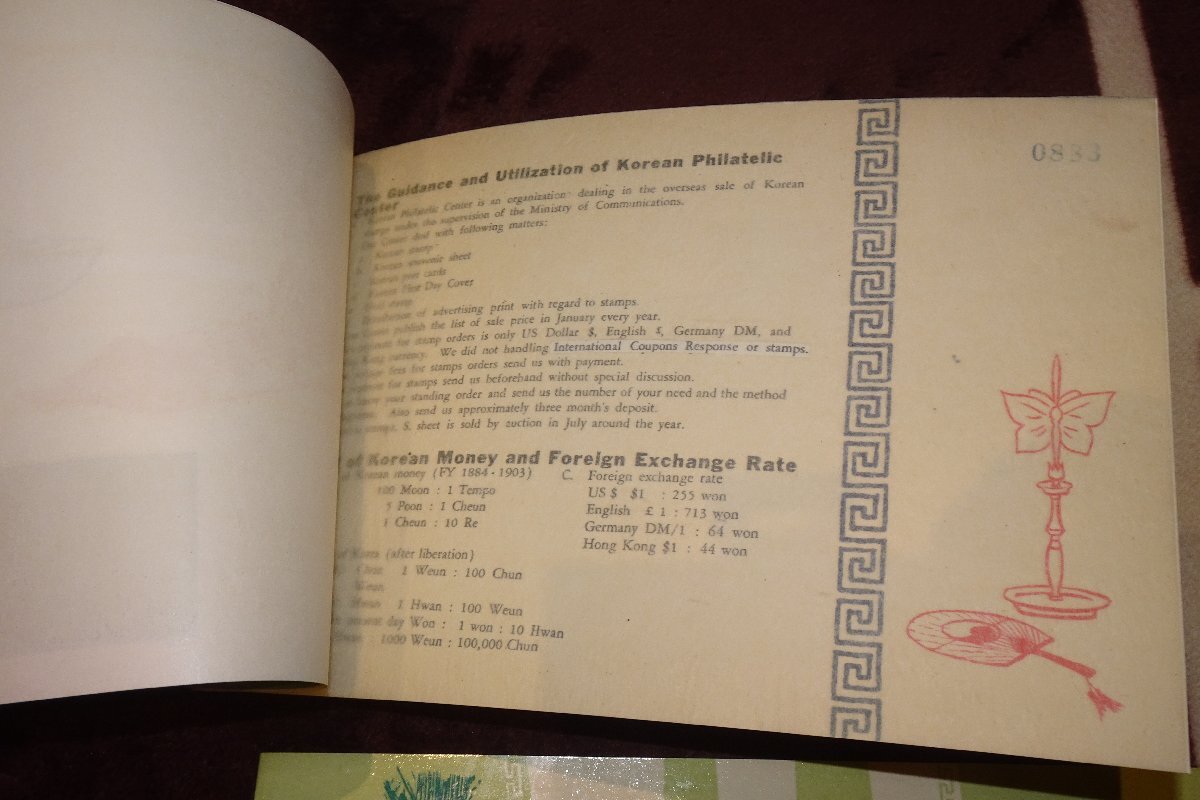 The Guidance and Utilization of Korean Philatelic
Center
Philatelic Center is an organization dealing in the overseas sale of Korean
under the supervision of the Ministry of Communications.
Center deal with following matters:
Korean stamp
Korean souvenir sheet
Korean post cards
First Day Cover
stamp
of advertising print with regard to stamps.
publish the list of sale price in January every year.
for stamp orders is only US Dollar $, English £, Germany DM, and
currency. We did not handling International Coupons Response or stamps.
fees for stamps orders send us with payment.
for stamps send us beforehand without special discussion.
your standing order and send us the number of your need and the method
Also send us approximately three month's deposit.
S. sheet is sold by auction in July around the year.
of Korean Money and Foreign Exchange Rate
Korean money (FY 1884-1903)
100 Moon : 1 Tempo
5 Poon : 1 Cheun
1 Cheun : 10 Re
of Korea (after liberation)
1 Weun : 100 Chun
Weun
Hwan 1 Hwan : 100 Weun
present day Won : 1 won : 10 Hwan
: 1000 Weun : 100,000 Chun
C. Foreign exchange rate
US $ $1 : 255 won
English £ 1 : 713 won
Germany DM/1 : 64 won
Hong Kong $1 : 44 won
0833